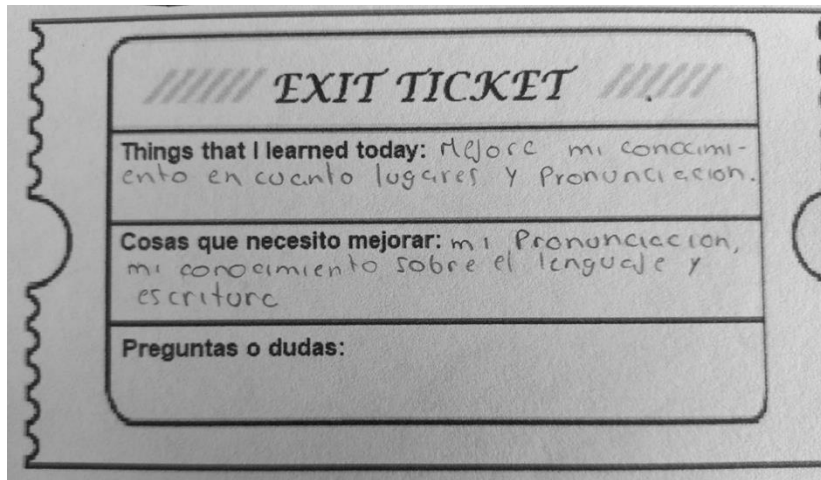 EXIT TICKET
Things that I learned today: Mejore mi conocimi-
ento en cuanto lugares y Pronunciacion.
Cosas que necesito mejorar: mi Pronunciacion,
mi conocimiento sobre el lenguaje y
escritura
Preguntas o dudas: